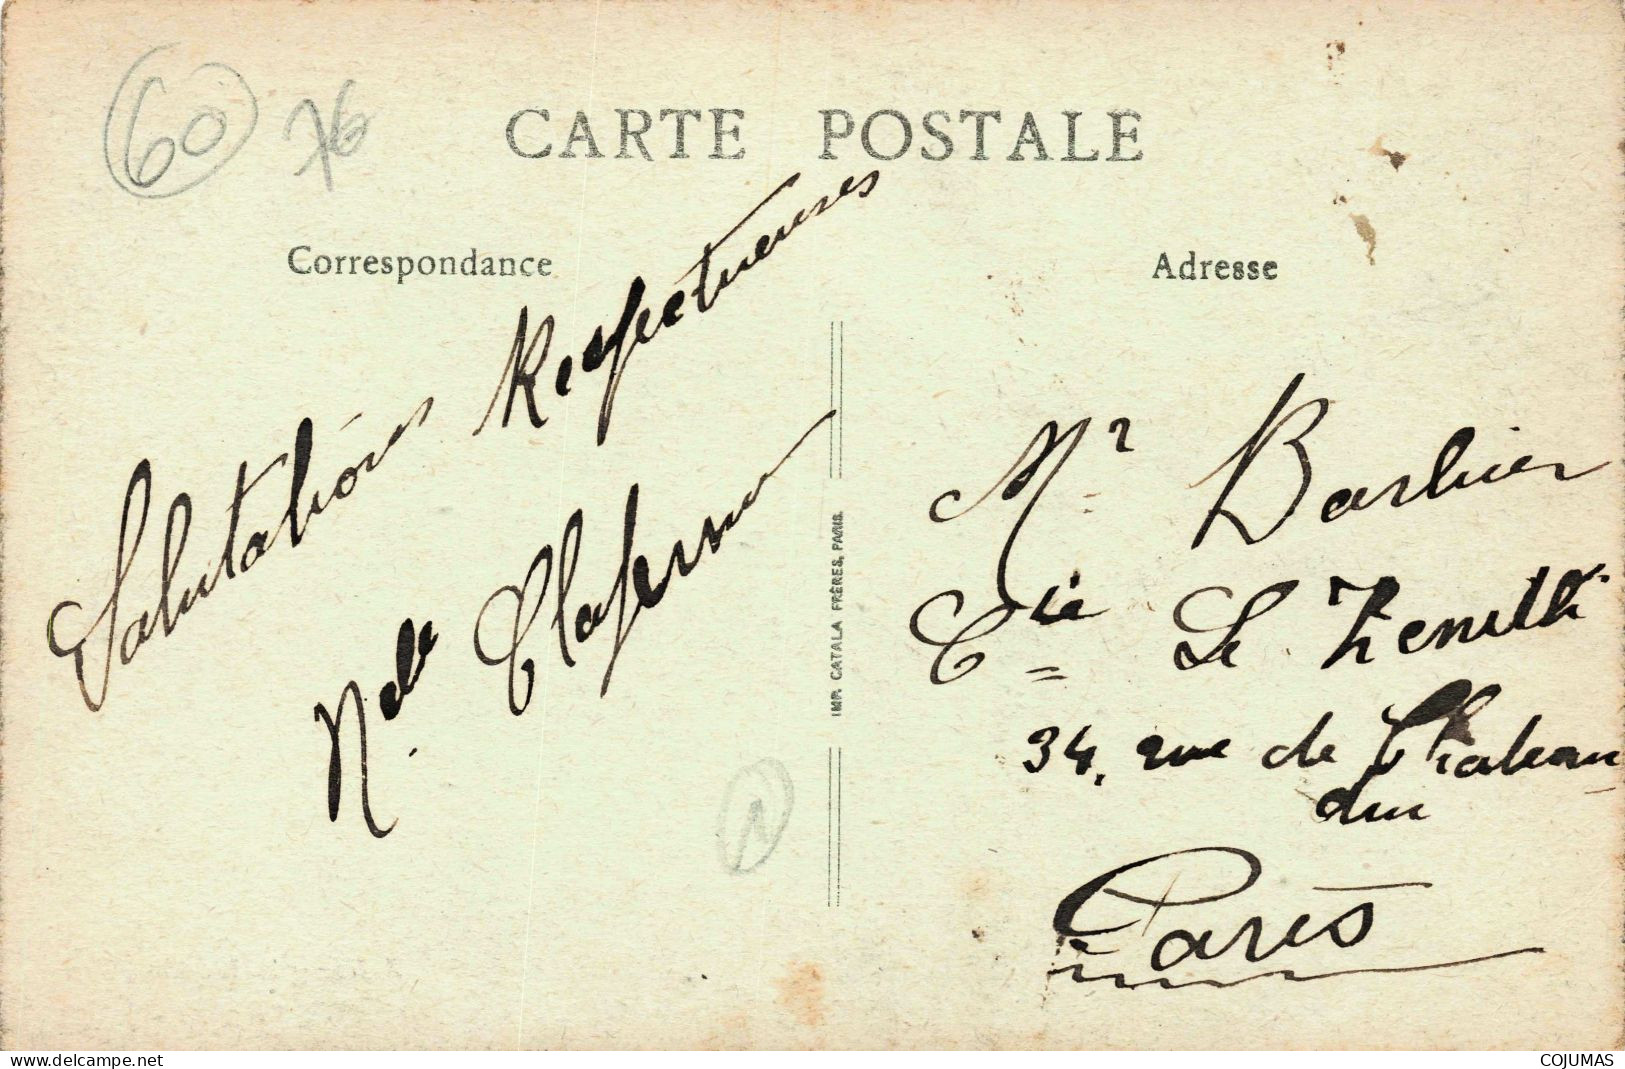 60 76
CARTE POSTALE
Correspondance
Adresse
Salutations Respectueuses
IMP. CATALA FRÈRES, PARIS.
Mr Barbier
Cie Le Zenith
34, rue de Chateau
dun
Paris
1
www.delcampe.net
COJUMAS